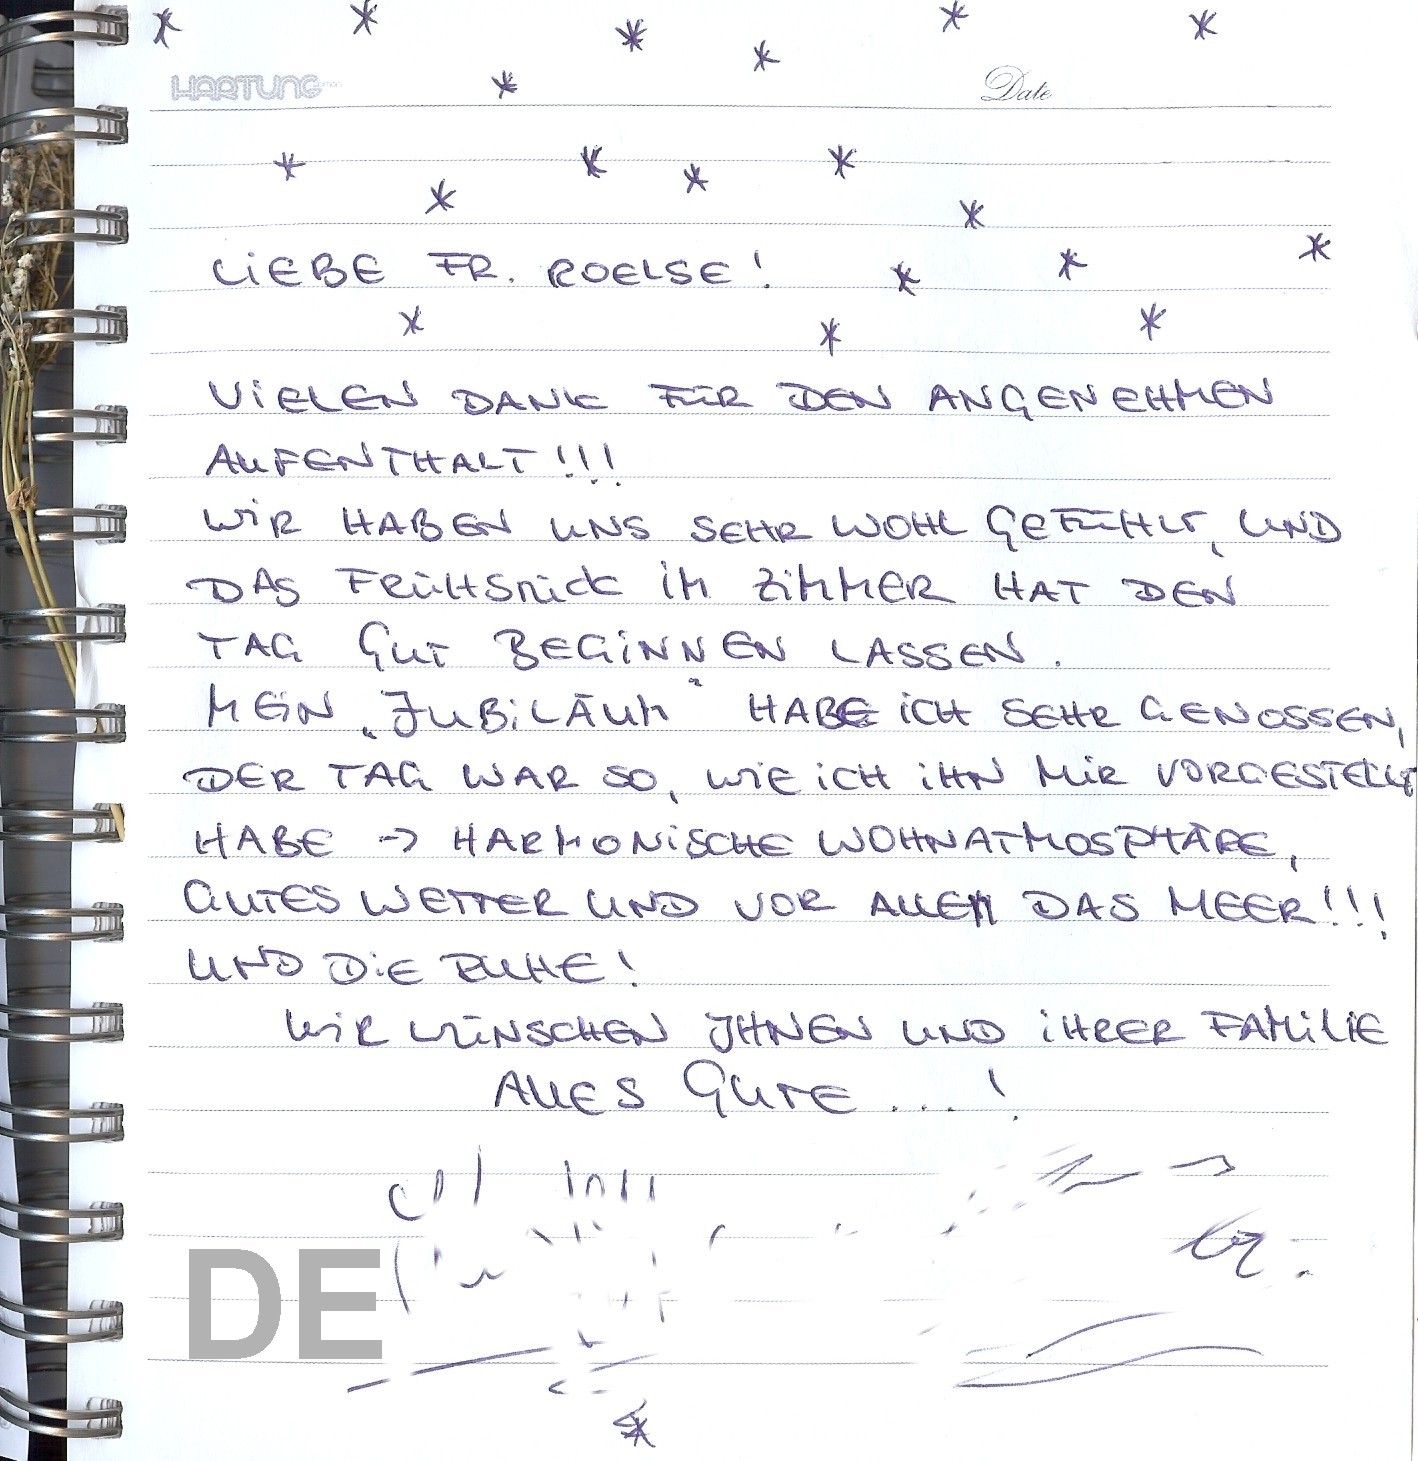 HARTUNG
Date
LIEBE FR. ROELSE!
VIELEN DANK FÜR DEN ANGENEHMEN
AUFENTHALT!!!
WIR HABEN UNS SEHR WOHL GEFÜHLT, UND
DAS FRÜHSTÜCK IM ZIMMER HAT DEN
TAG GUT BEGINNEN LASSEN.
MEIN „JUBILÄUM" HABE ICH SEHR GENOSSEN,
DER TAG WAR SO, WIE ICH IHN MIR VORGESTELLT
HABE -> HARMONISCHE WOHNATMOSPHÄRE,
GUTES WETTER UND VOR ALLEM DAS MEER!!!
UND DIE RUHE!
WIR WÜNSCHEN IHNEN UND IHRER FAMILIE
ALLES GUTE ...!
DE